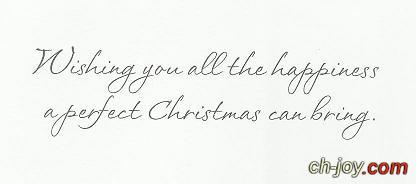 Wishing you all the happiness
a perfect Christmas can bring.
ch-joy.com